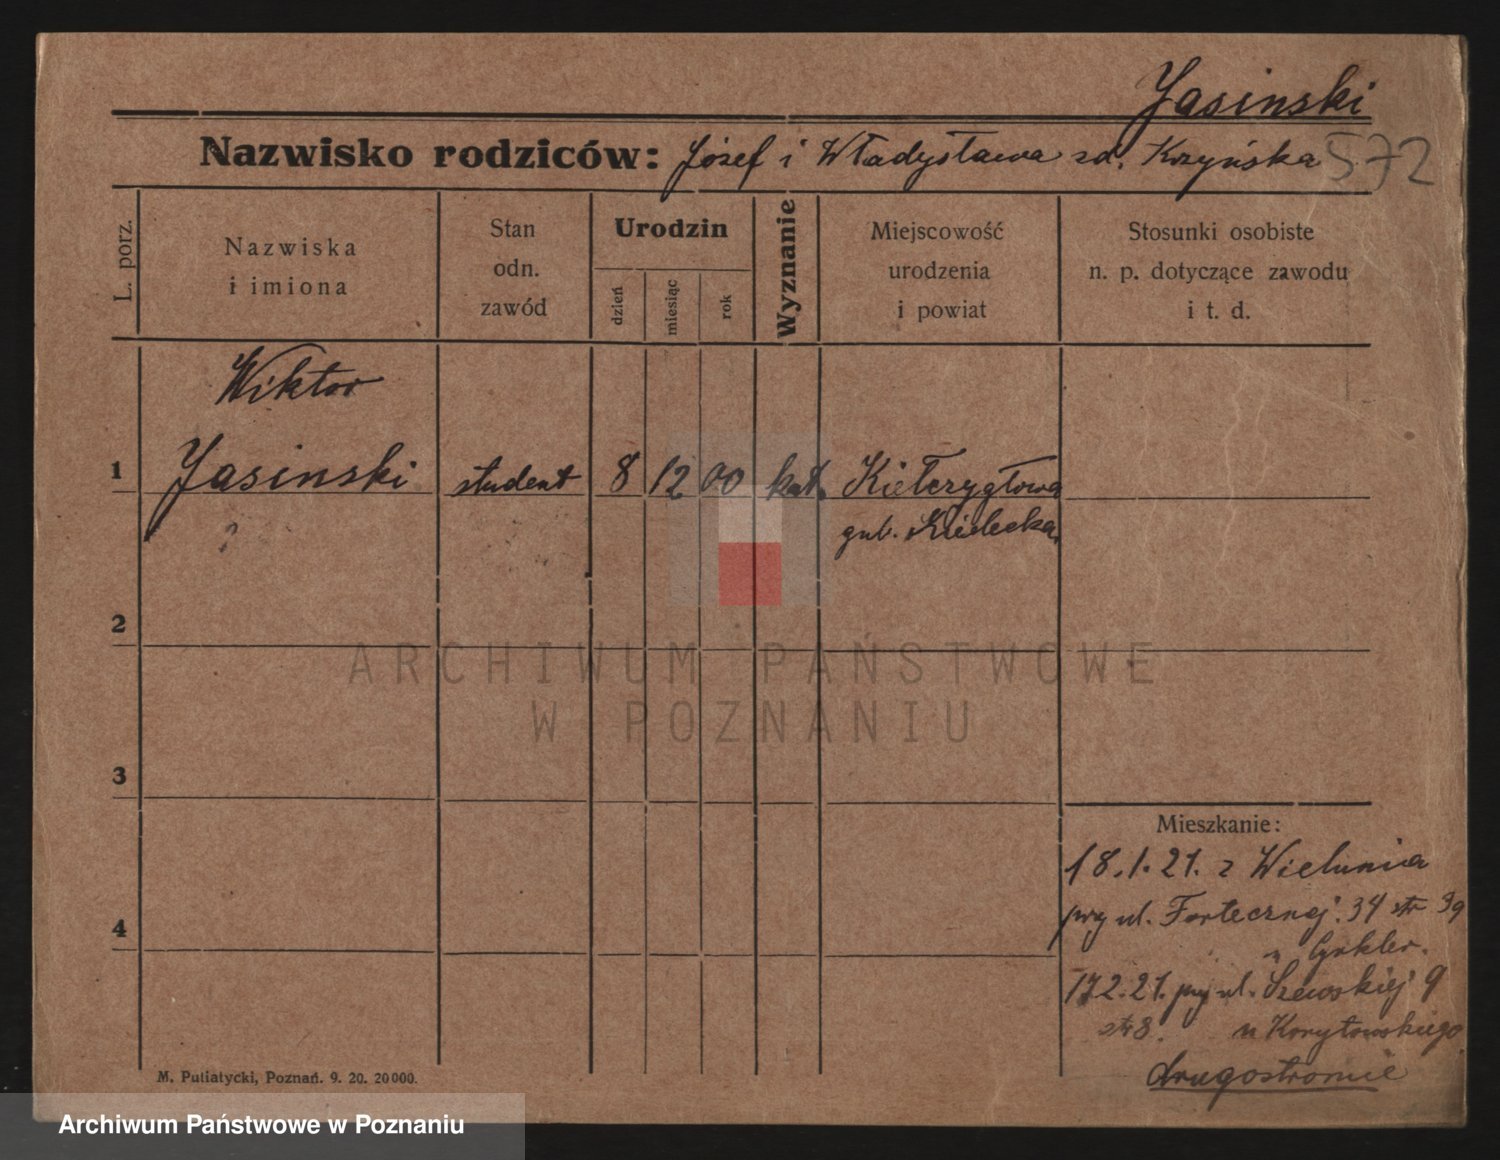 Jasinski
Nazwisko rodziców: Józef i Władysława zd. Krzyńska 572
L. porz.
Nazwiska
i imiona
Stan
odn.
zawód
Urodzin
dzień
miesiąc
rok
Wyznanie
Miejscowość
urodzenia
i powiat
Stosunki osobiste
n. p. dotyczące zawodu
i t. d.
Wiktor
1 Jasinski student 8 12 00 kat. Kiełczygłowa
gub. Kielecka
?
2
3
4
ARCHIWUM PAŃSTWOWE
W POZNANIU
Mieszkanie:
18.1.21. z Wielunia
przy ul. Fortecznej 34 str
u
2.21. przy ul. Szewskiej 9
u Korytowskiego
drugostronnie
M. Putiatycki, Poznań. 9. 20. 20000.
Archiwum Państwowe w Poznaniu